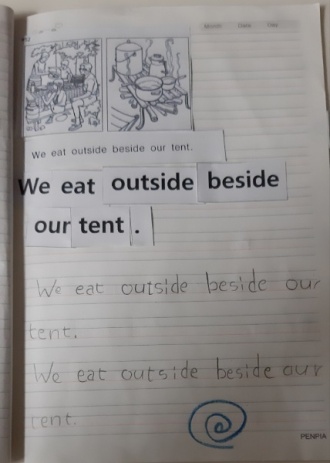 We eat outside beside our tent.
We eat outside beside
our tent .
We eat outside beside our
tent.
We eat outside beside our
tent.
PENPIA